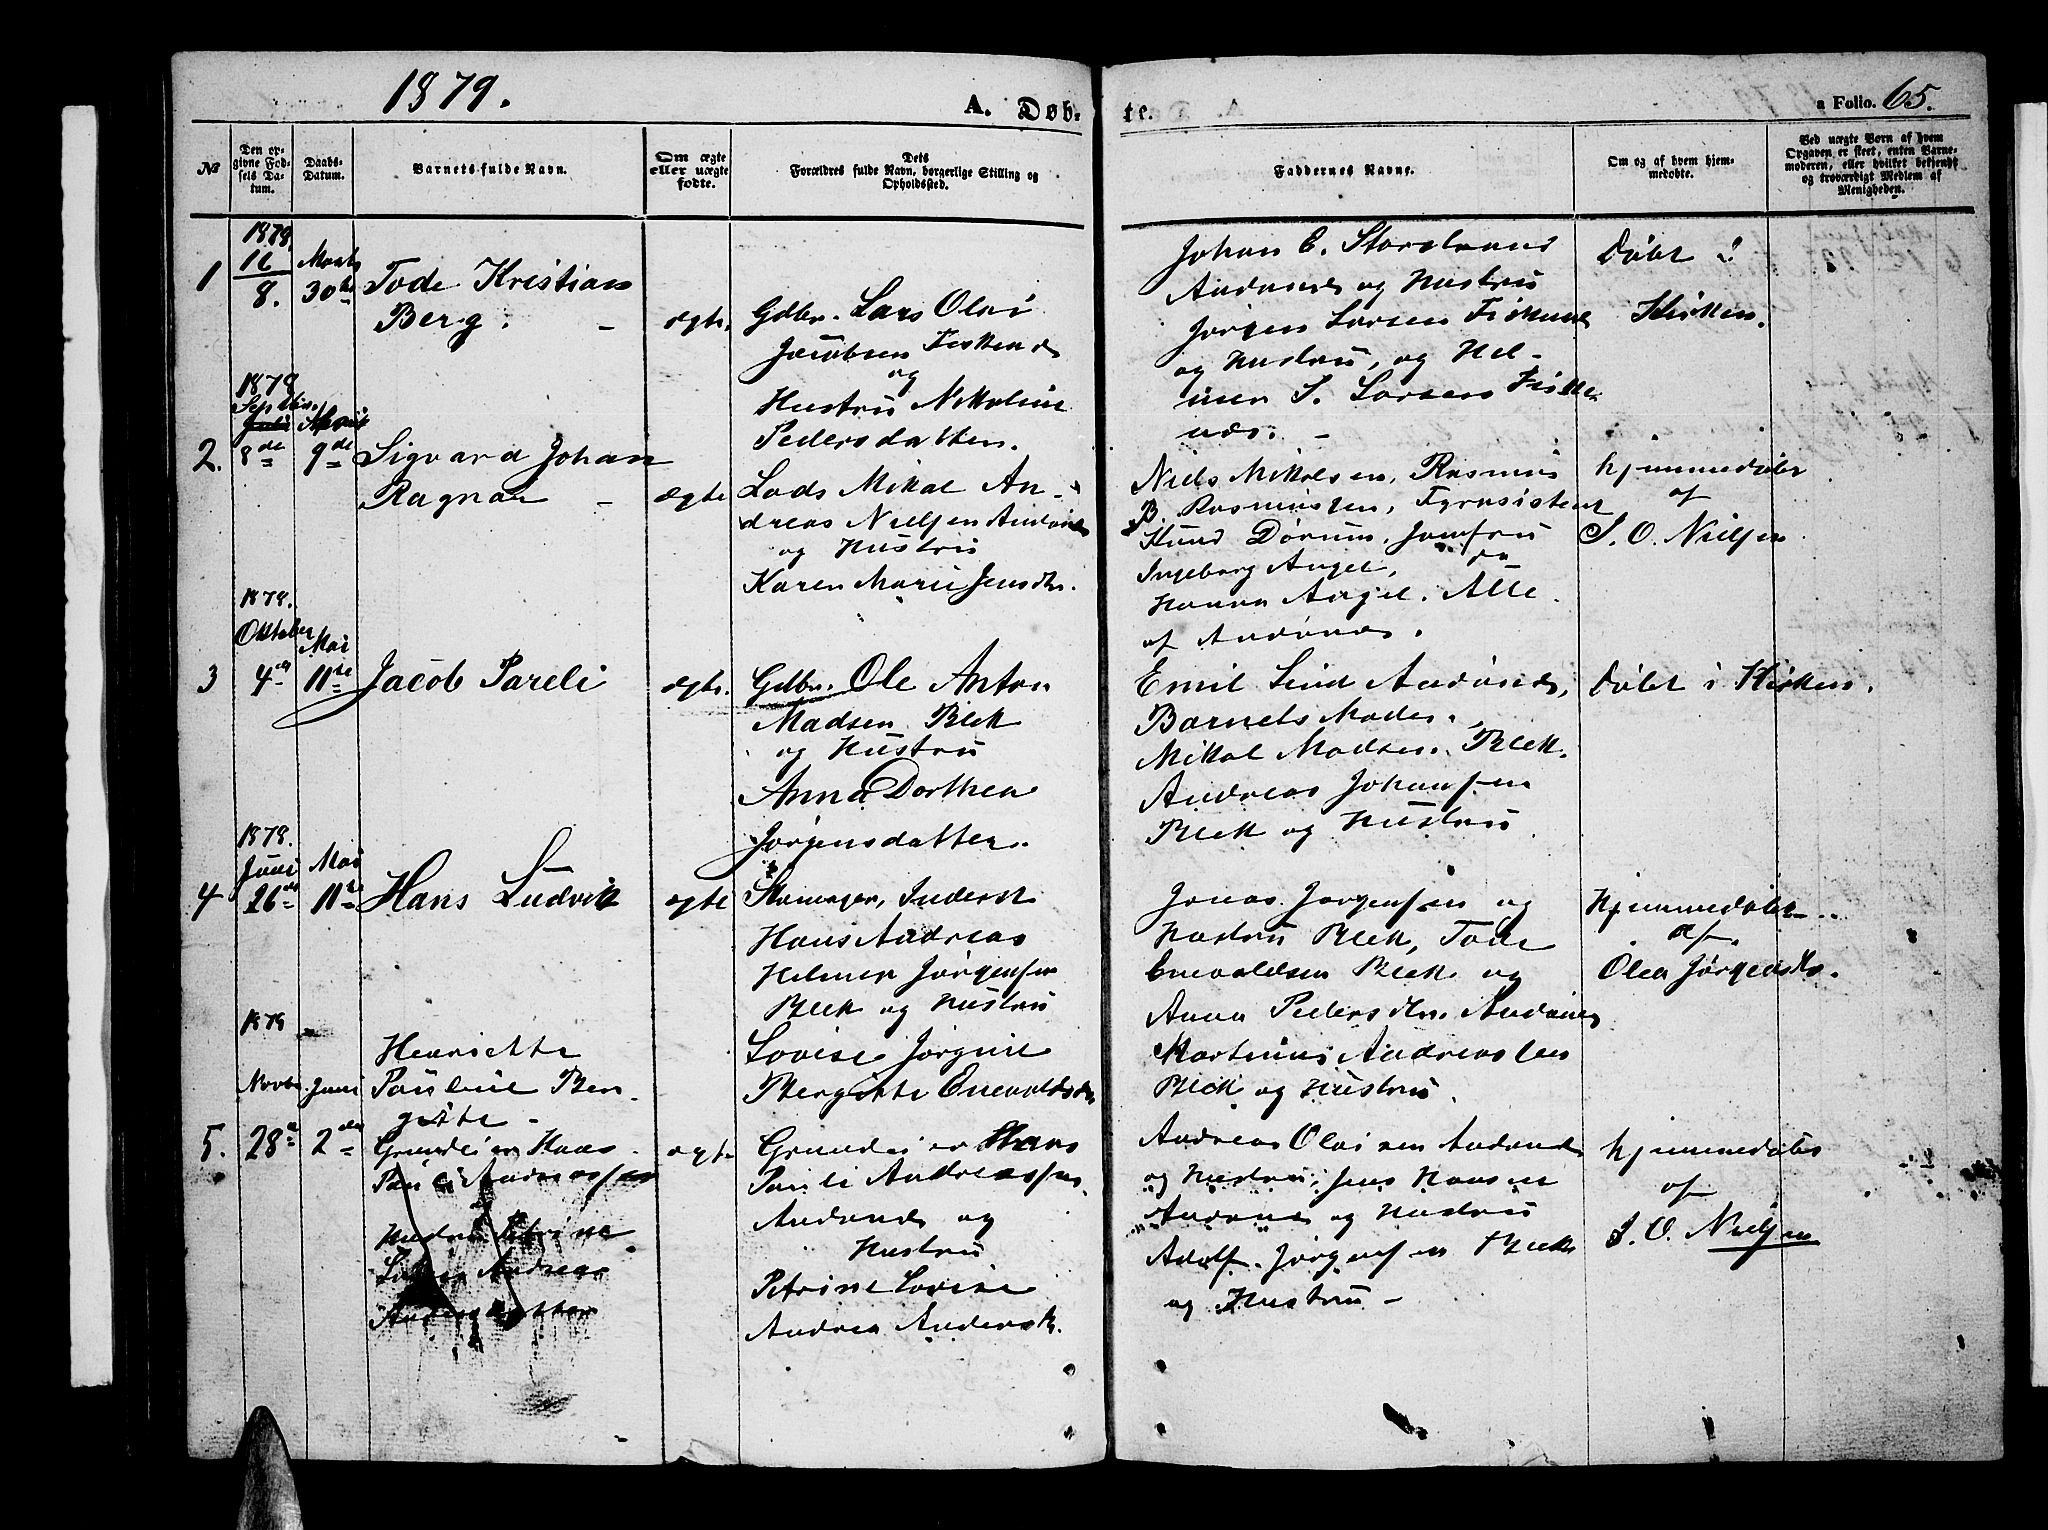 1879.
A. Døb-
te.
a Folio. 65.
№
Den opgivne Fødsels Datum.
Daabs-Datum.
Barnets fulde Navn.
Om ægte eller uægte fødte.
Dets Forældres fulde Navn, borgerlige Stilling og Opholdssted.
Faddernes Navne.
Om og af hvem hjemmedøbt.
Ved uægte Børn af hvem Opgaven er skeet, enten Barnemoderen, eller hvilket bekjendt og troværdigt Medlem af Menigheden.
1878.
16
8.
Marts
30te
1
Tode Kristian
Berg.
ægte.
Gdbr. Lars Olai
Jacobsen Fiskenæs
og
Hustru Nikoline
Pedersdatter.
Johan E. Storstrand
Andenes og Hustru
Jørgen Larsen Fiskenæs
og Hustru, og Hel-
mer S. Larsen Fiske
næs.
Døbt i
Kirken.
1878
Septbr.
Juli
8de
9de
2.
Sigvard Johan
Ragnar
ægte
Lods Mikal An-
dreas Nielsen Andenes
og Hustru
Karen Marie Jensdtr.
Niels Mikalsen, Rasmus
B. Rasmussen, Fyrasistent
Knud Dørum, Jomfru
Ingeborg Angel, do
Hanna Angel. Alle
af Andenes.
hjemmedøbt
af
S. O. Nielsen
1878.
Oktober
Mai
3
4de
11te
Jacob Pareli
ægte.
Gdbr. Ole Anton
Madsen Bleik
og Hustru
Anna Dorthea
Jørgensdatter.
Emil Lind Andenes,
Barnets Moder,
Mikal Madsen Bleik.
Andreas Johansen
Bleik og Hustru
Døbt i Kirken.
1878.
Juni
Mai
4
26de
11te
Hans Ludvik
ægte
Hans Andreas
Helmer Jørgensen
Bleik og Hustru
Lovise Jørgine
Bergitte Enevoldsdtr
Jonas Jørgensen og
Hustru Bleik, Tode
Enevoldsen Bleik og
Anna Pedersdtr. Andenes
Martinus Andreassen
Bleik og Hustru.
Hjemmedøbt
af
Olea Jørgensdtr.
1878
Novbr
Juni
5.
28de
2den
Henriette
Pauline Ber-
gitte
Grundeier Hans
Pauli Andreassen
Hustru Petrine
Lovise Andrea
Andersdatter
ægte
Grundeier Hans
Pauli Andreassen
Andenes og
Hustru
Petrine Lovise
Andrea Andersdtr.
Andreas Olaisen Andenes
og Hustru, Jens Hansen
Andenes og Hustru
Adolf Jørgensen Bleik
og Hustru
hjemmedøbt
af
S. O. Nielsen